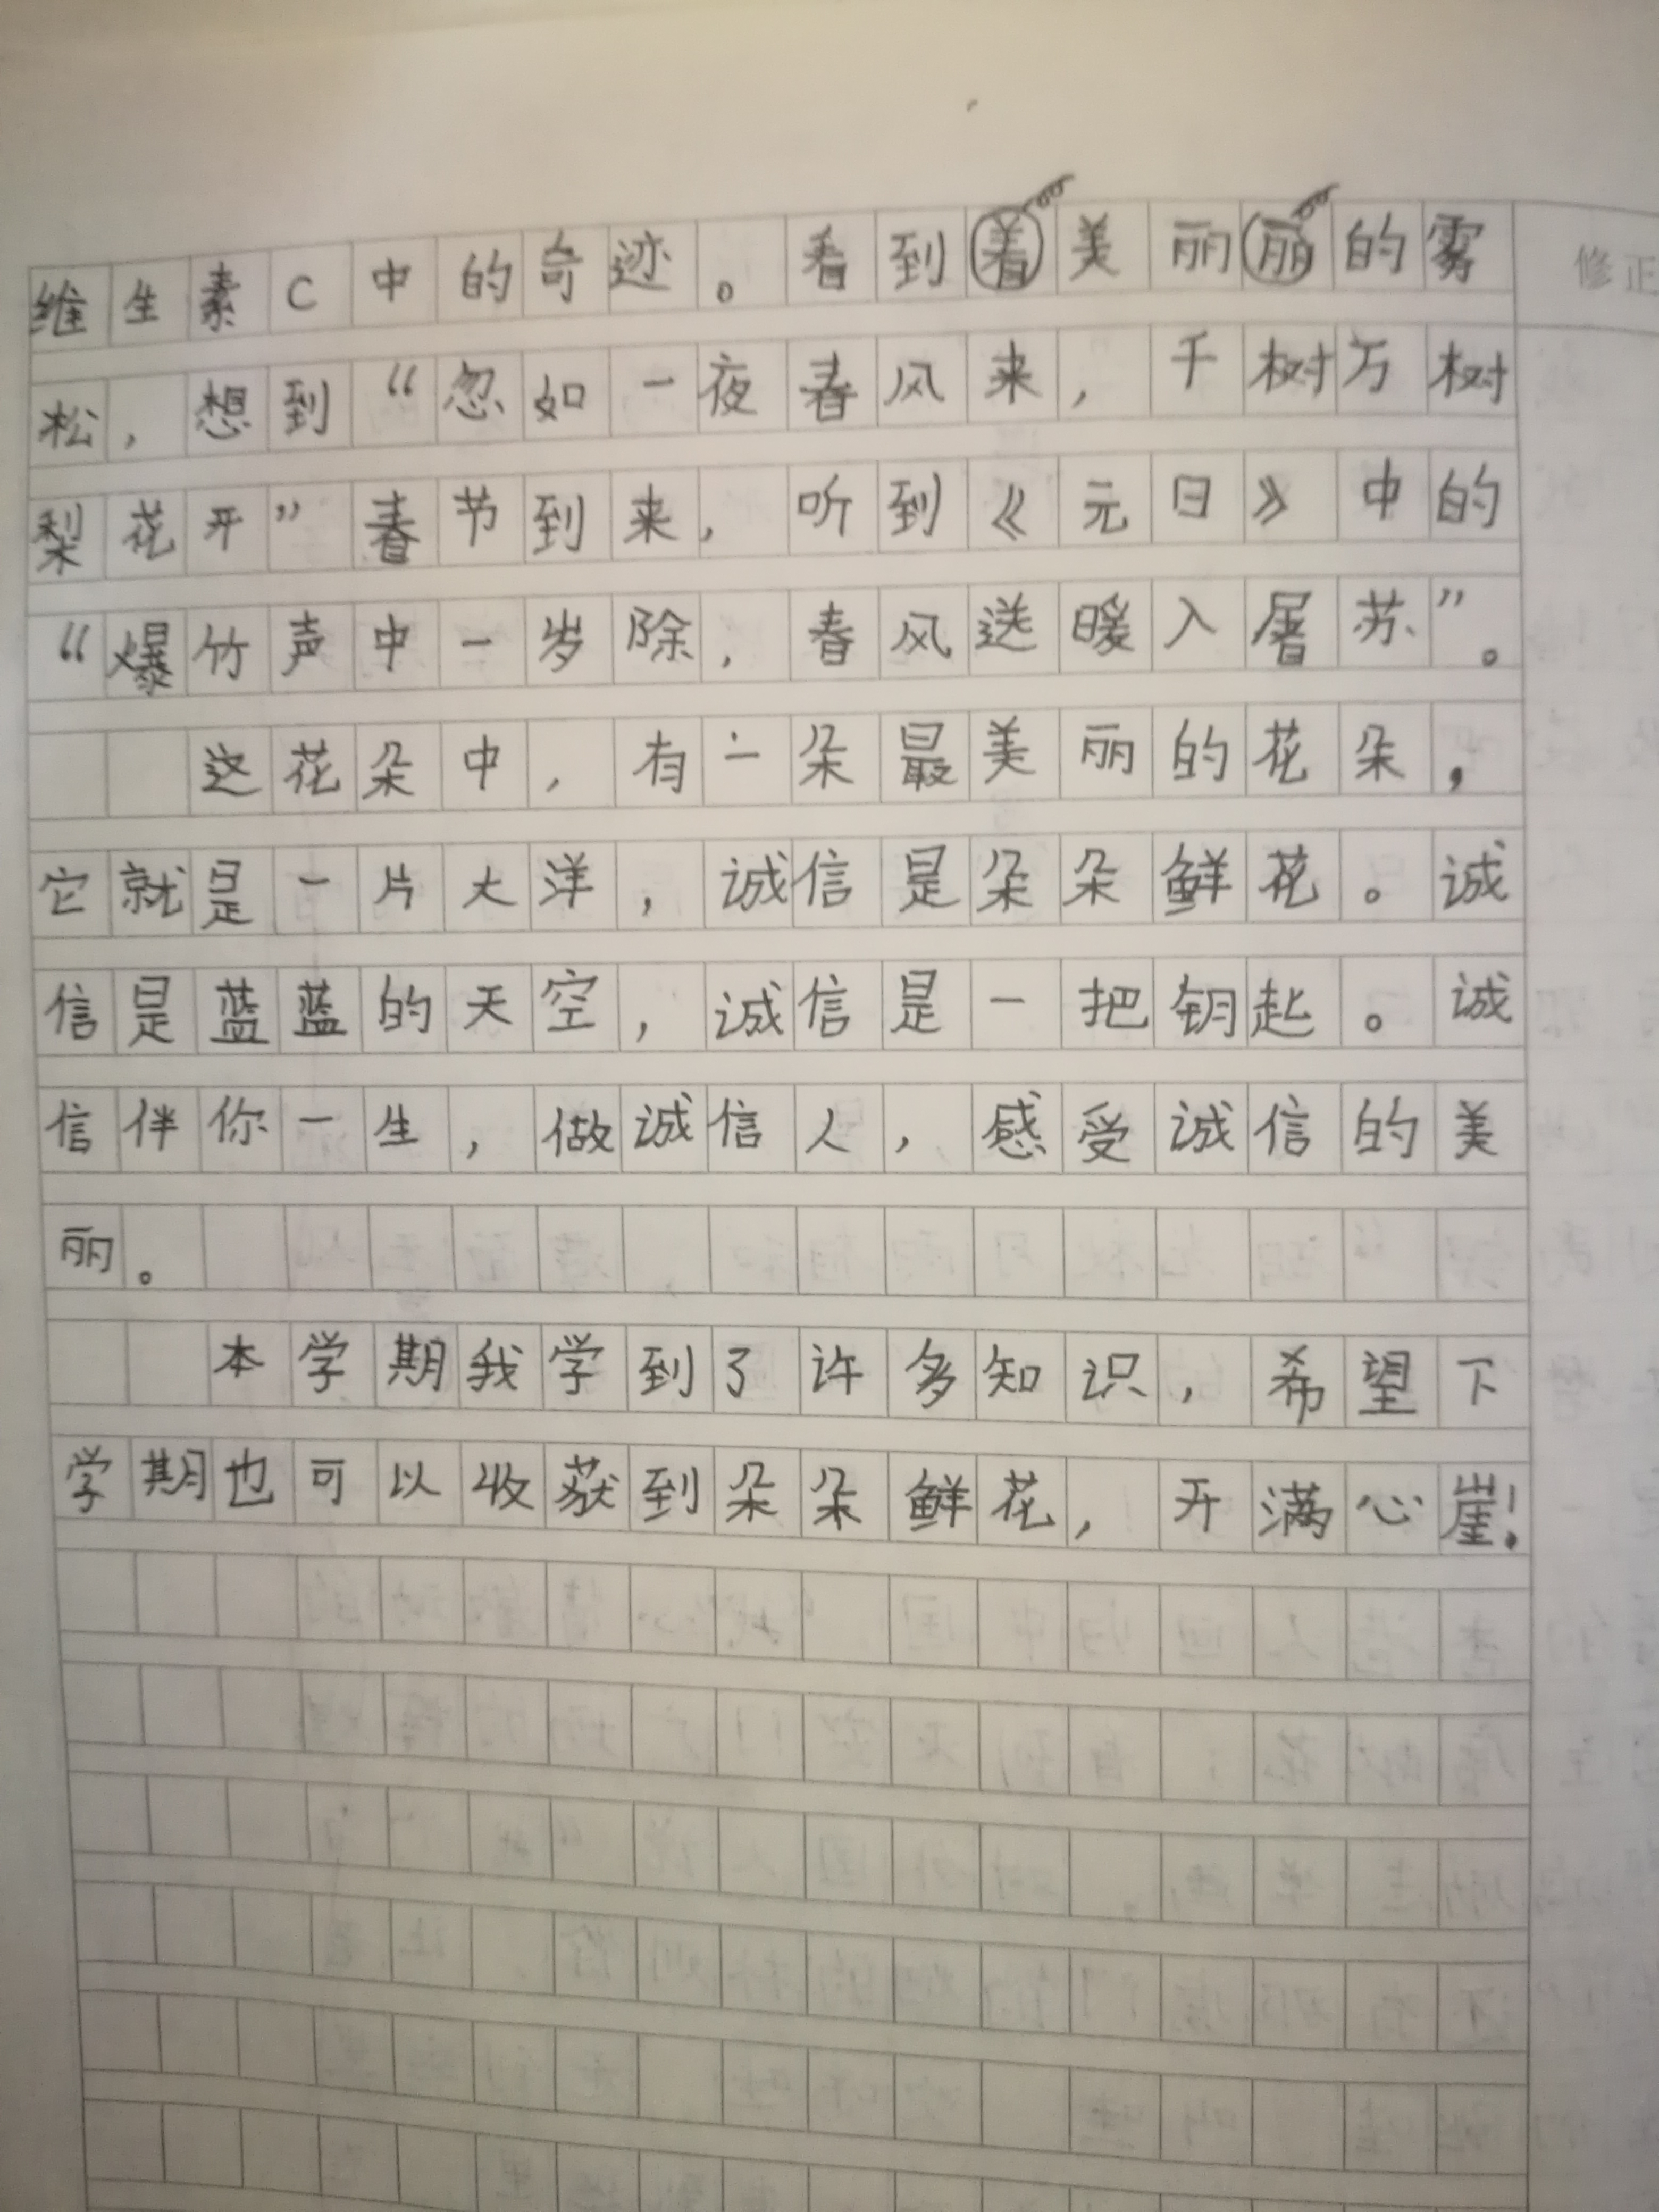 维生素C中的奇迹。看到着美丽丽的雾
修正
松，想到“忽如一夜春风来，千树万树
梨花开”春节到来，听到《元日》中的
“爆竹声中一岁除，春风送暖入屠苏”。
这花朵中，有一朵最美丽的花朵，
它就是一片大洋，诚信是朵朵鲜花。诚
信是蓝蓝的天空，诚信是一把钥起。诚
信伴你一生，做诚信人，感受诚信的美
丽。
本学期我学到了许多知识，希望下
学期也可以收获到朵朵鲜花，开满心崖！